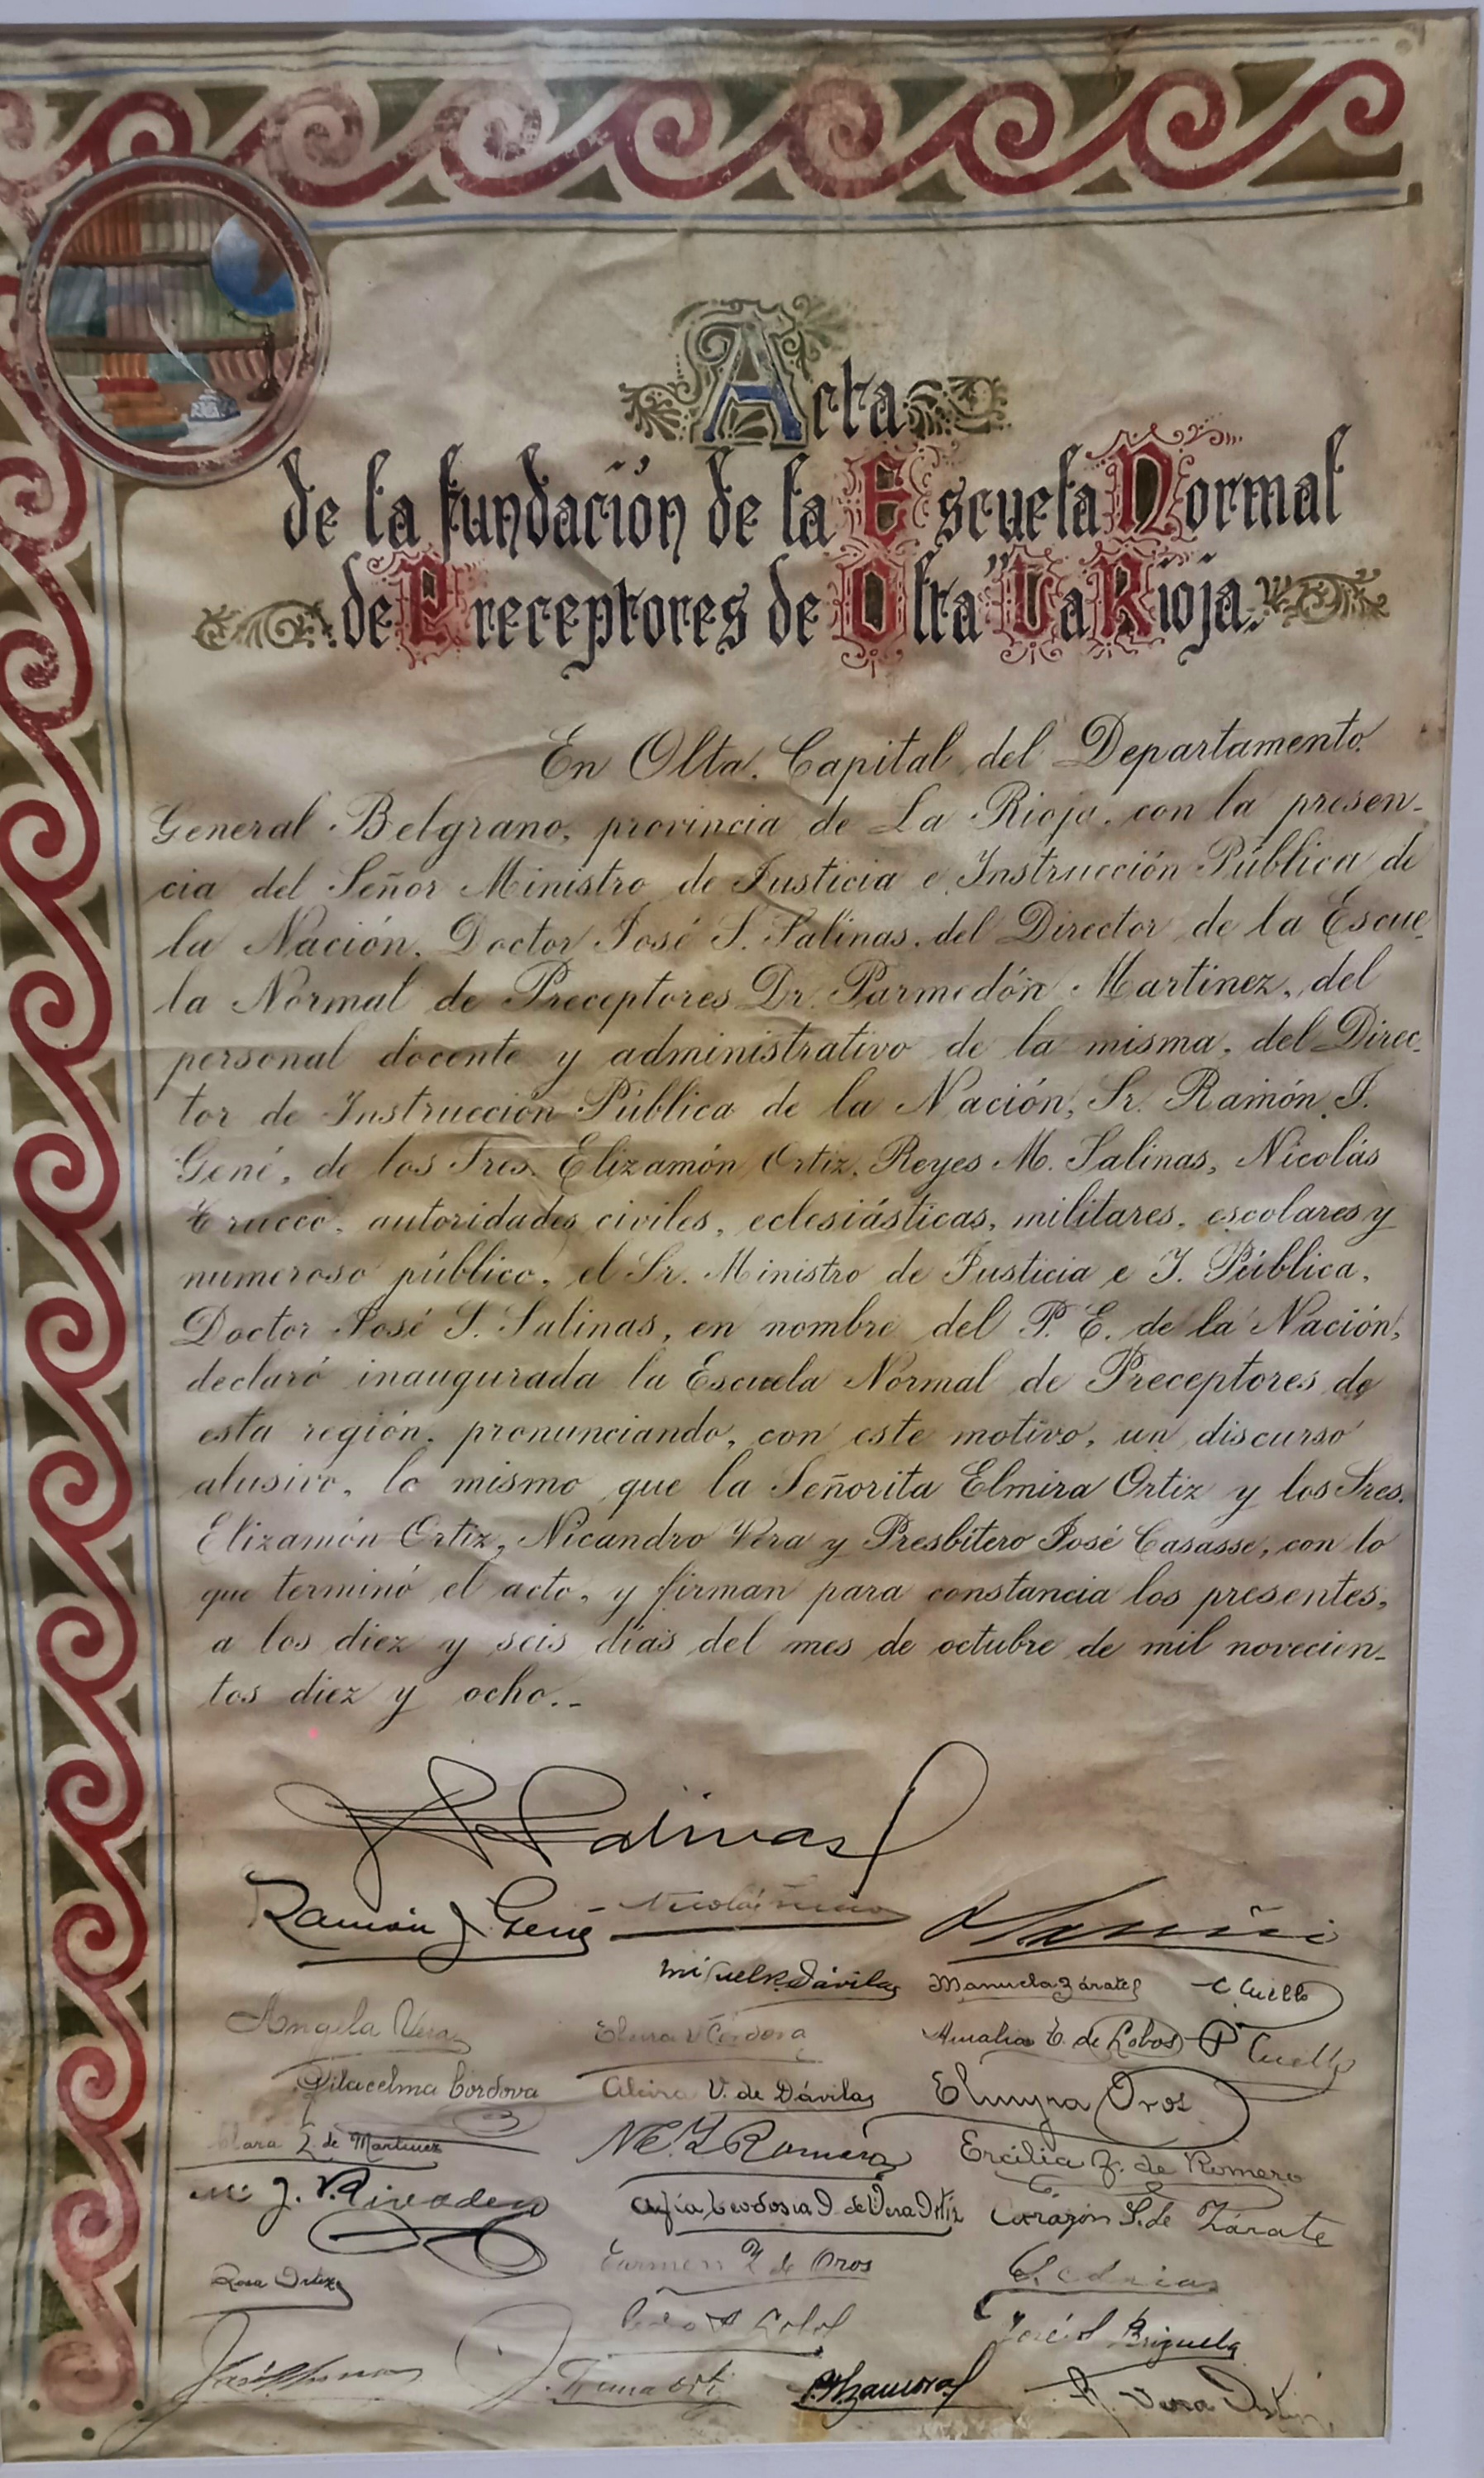 Acta
de la fundación de la Escuela Normal
de Preceptores de Olta "La Rioja"
En Olta. Capital del Departamento
General Belgrano, provincia de La Rioja, con la presen-
cia del Señor Ministro de Justicia e Instrucción Pública de
la Nación, Doctor José S. Salinas, del Director de la Escue-
la Normal de Preceptores Dr. Parmedón Martinez, del
personal docente y administrativo de la misma, del Direc-
tor de Instrucción Pública de la Nación, Sr. Ramón J.
Gené, de los Sres. Elizamón Ortiz, Reyes M. Salinas, Nicolás
autoridades civiles, eclesiásticas, militares, escolares y
numeroso público, el Sr. Ministro de Justicia e I. Pública,
Doctor José S. Salinas, en nombre del P. E. de la Nación,
declaró inaugurada la Escuela Normal de Preceptores de
esta región, pronunciando, con este motivo, un discurso
alusivo, lo mismo que la Señorita Elmira Ortiz y los Sres.
Elizamón Ortiz, Nicandro Vera y Presbítero José Casasse, con lo
que terminó el acto, y firman para constancia los presentes,
a los diez y seis días del mes de octubre de mil novecien-
tos diez y ocho.-
Salinas
Ramón J. Gené Nicolás
Miguel Dávila Manuela Zárate C. Cuello
Angela Vera Córdova Amalia E. de Lobos P. Cuello
Córdova Alcira V. de Dávila Elmyra Oros
Clara L. de Martinez Romero Ercilia Z. de Romero
J. V. de Vera Ortiz Corazón S. de Zárate
Rosa Ortiz Carmen Z. de Oros
José S. Brizuela
Zamora Vera